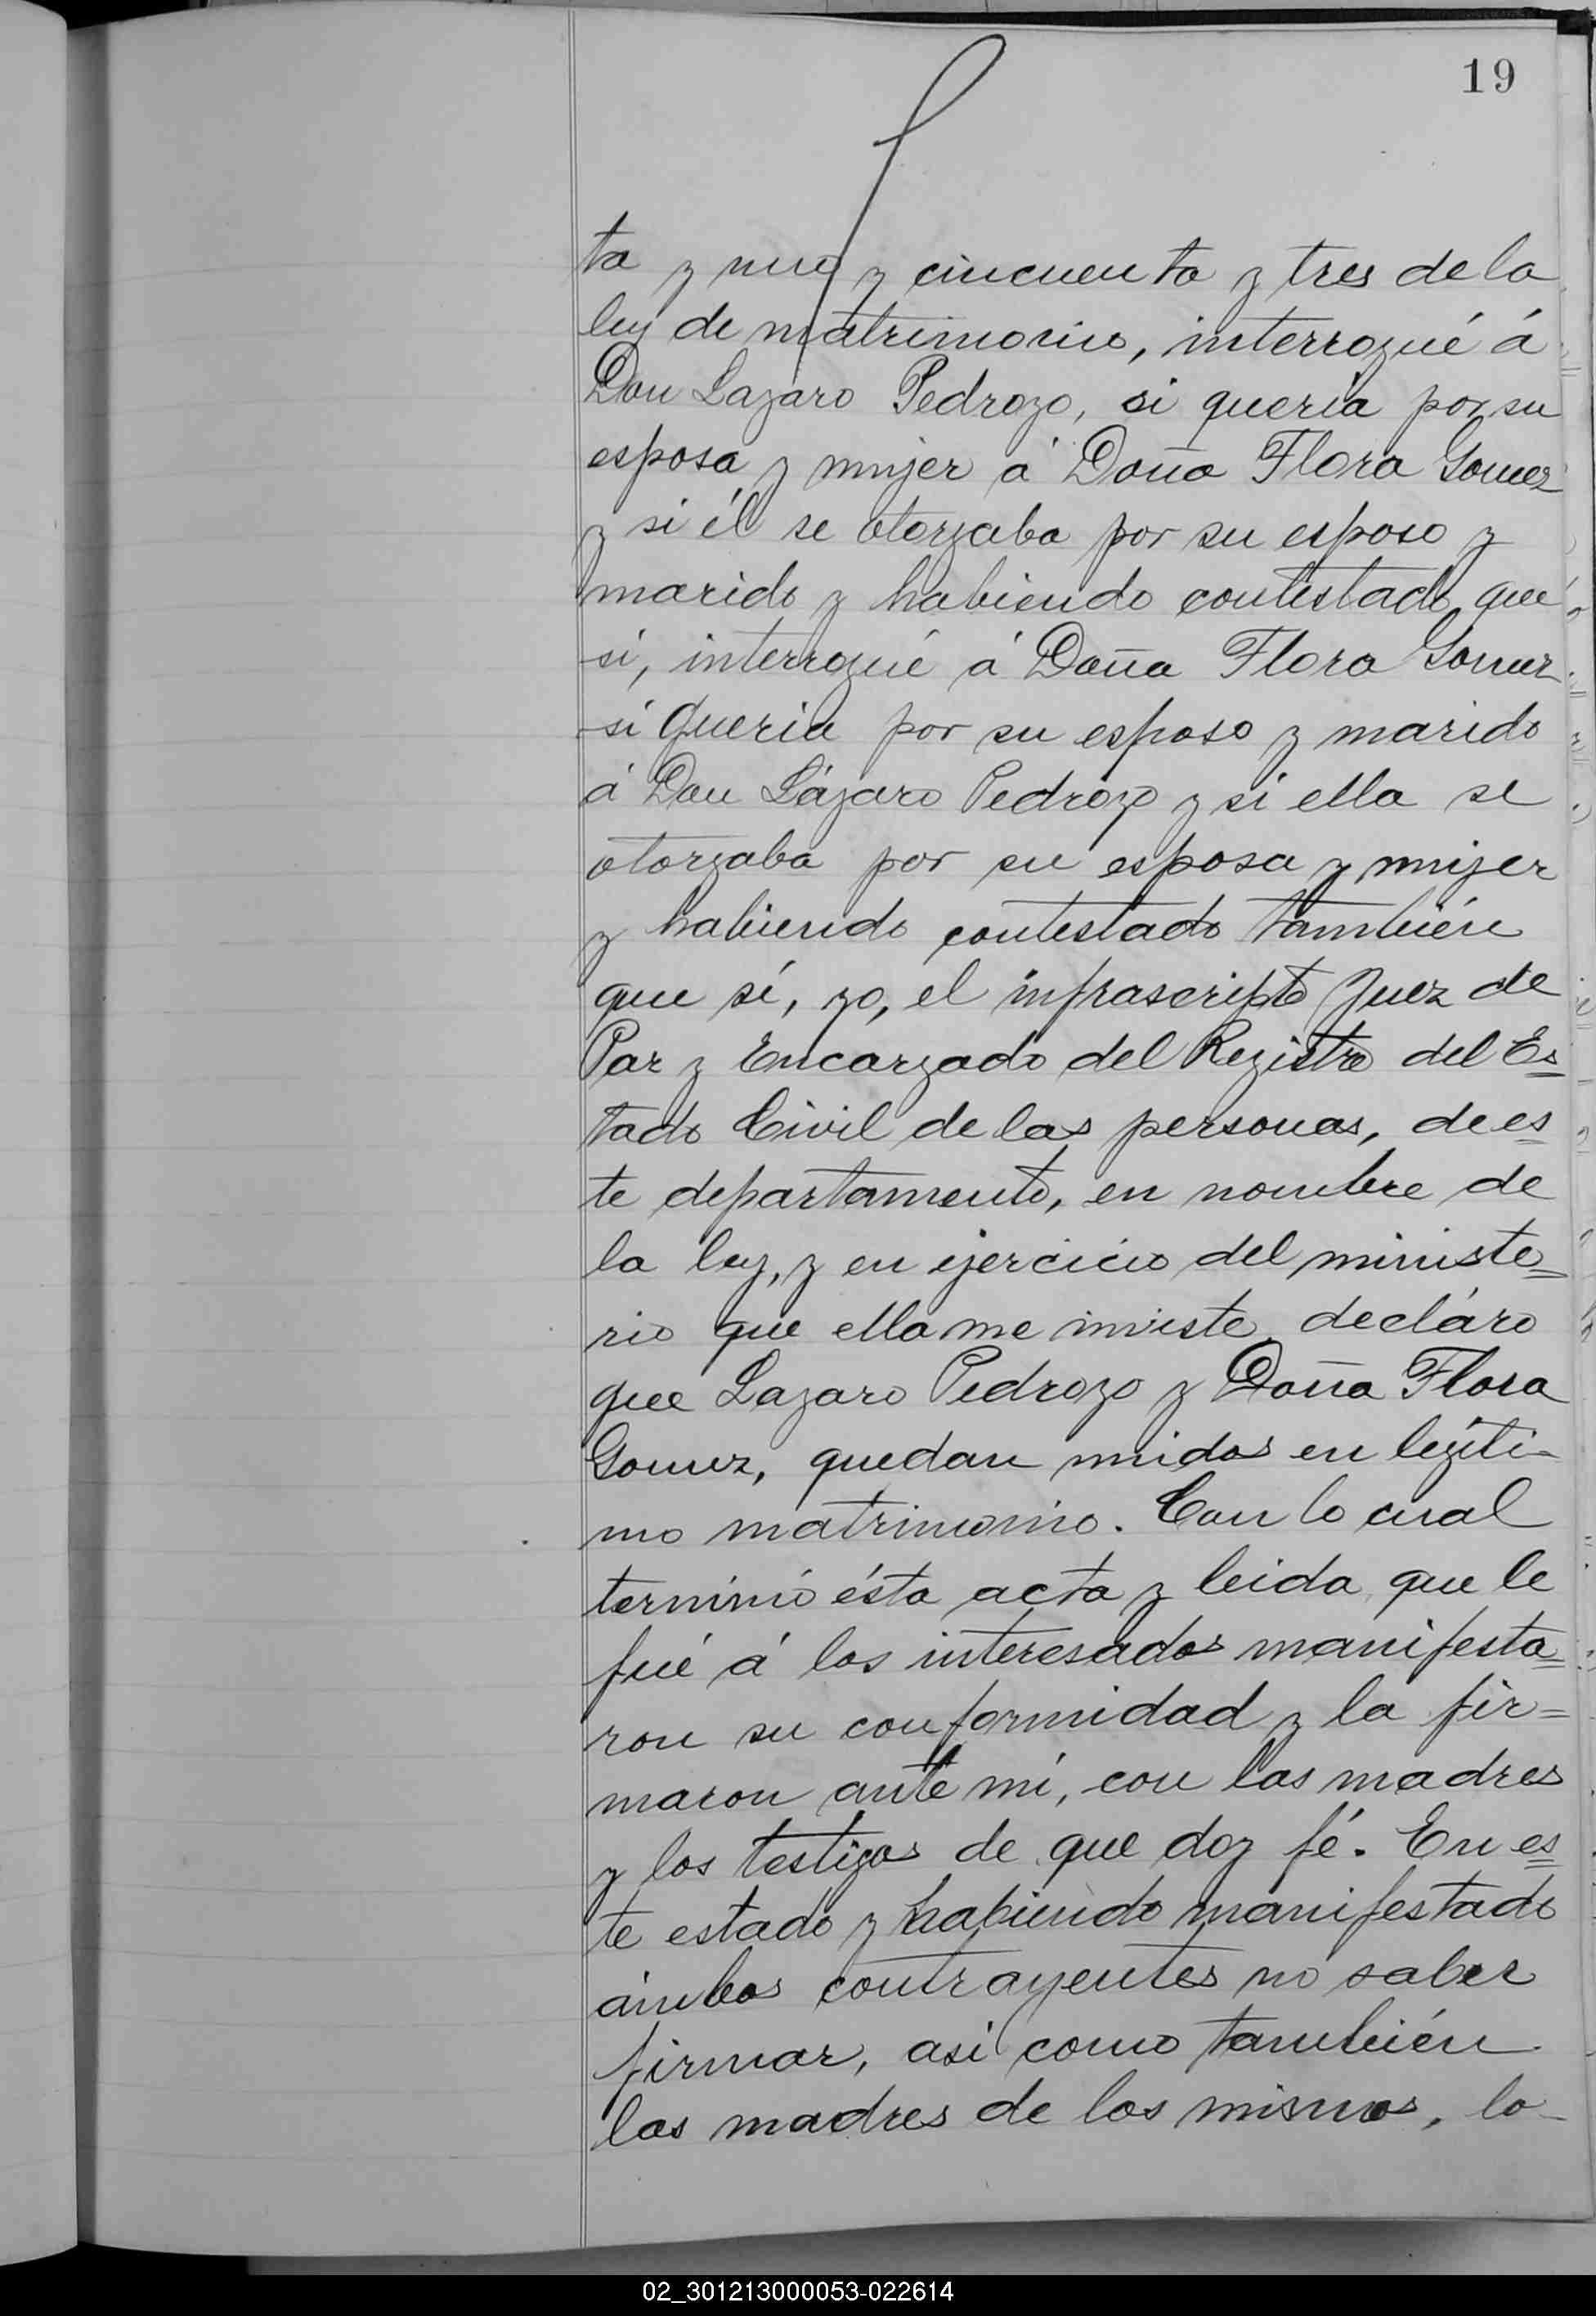 19
ta y uno y cincuenta y tres de la
ley de matrimonio, interrogué á
Don Lazaro Pedrozo, si queria por su
esposa y mujer á Doña Flora Gomez
y si él se otorgaba por su esposo y
marido y habiendo contestado que
si, interrogué á Doña Flora Gomez
si queria por su esposo y marido
á Don Lázaro Pedrozo y si ella se
otorgaba por su esposa y mujer
y habiendo contestado también
que sí, yo, el infrascripto Juez de
Paz y Encargado del Registro del Es=
tado Civil de las personas, de es=
te departamento, en nombre de
la ley, y en ejercicio del ministe=
rio que ella me inviste, decláro
que Lazaro Pedrozo y Doña Flora
Gomez, quedan unidos en legíti-
mo matrimonio. Con lo cual
terminó ésta acta y leida que le
fué á los interesados manifesta=
ron su conformidad y la fir=
maron ante mí, con las madres
y los testigos de que doy fé. En es=
te estado y habiendo manifestado
ámbos contrayentes no saber
firmar, asi como también
las madres de los mismos, lo-
02_301213000053-022614